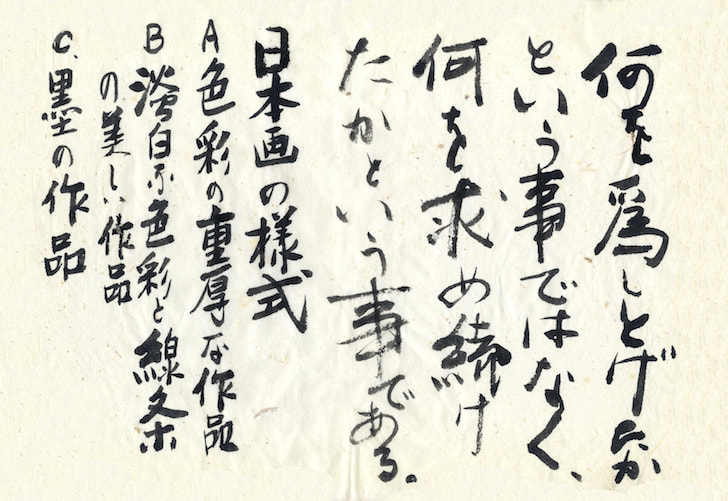 何を爲しとげたか
という事ではなく、
何を求め続け
たかという事である。
日本画の様式
A 色彩の重厚な作品
B 淡白な色彩と線条
の美しい作品
C. 墨の作品